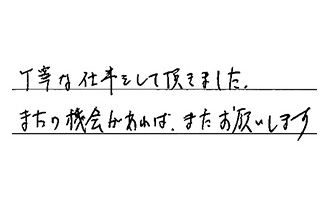 丁寧な仕事をして頂きました。
またの機会があれば、またお願いします